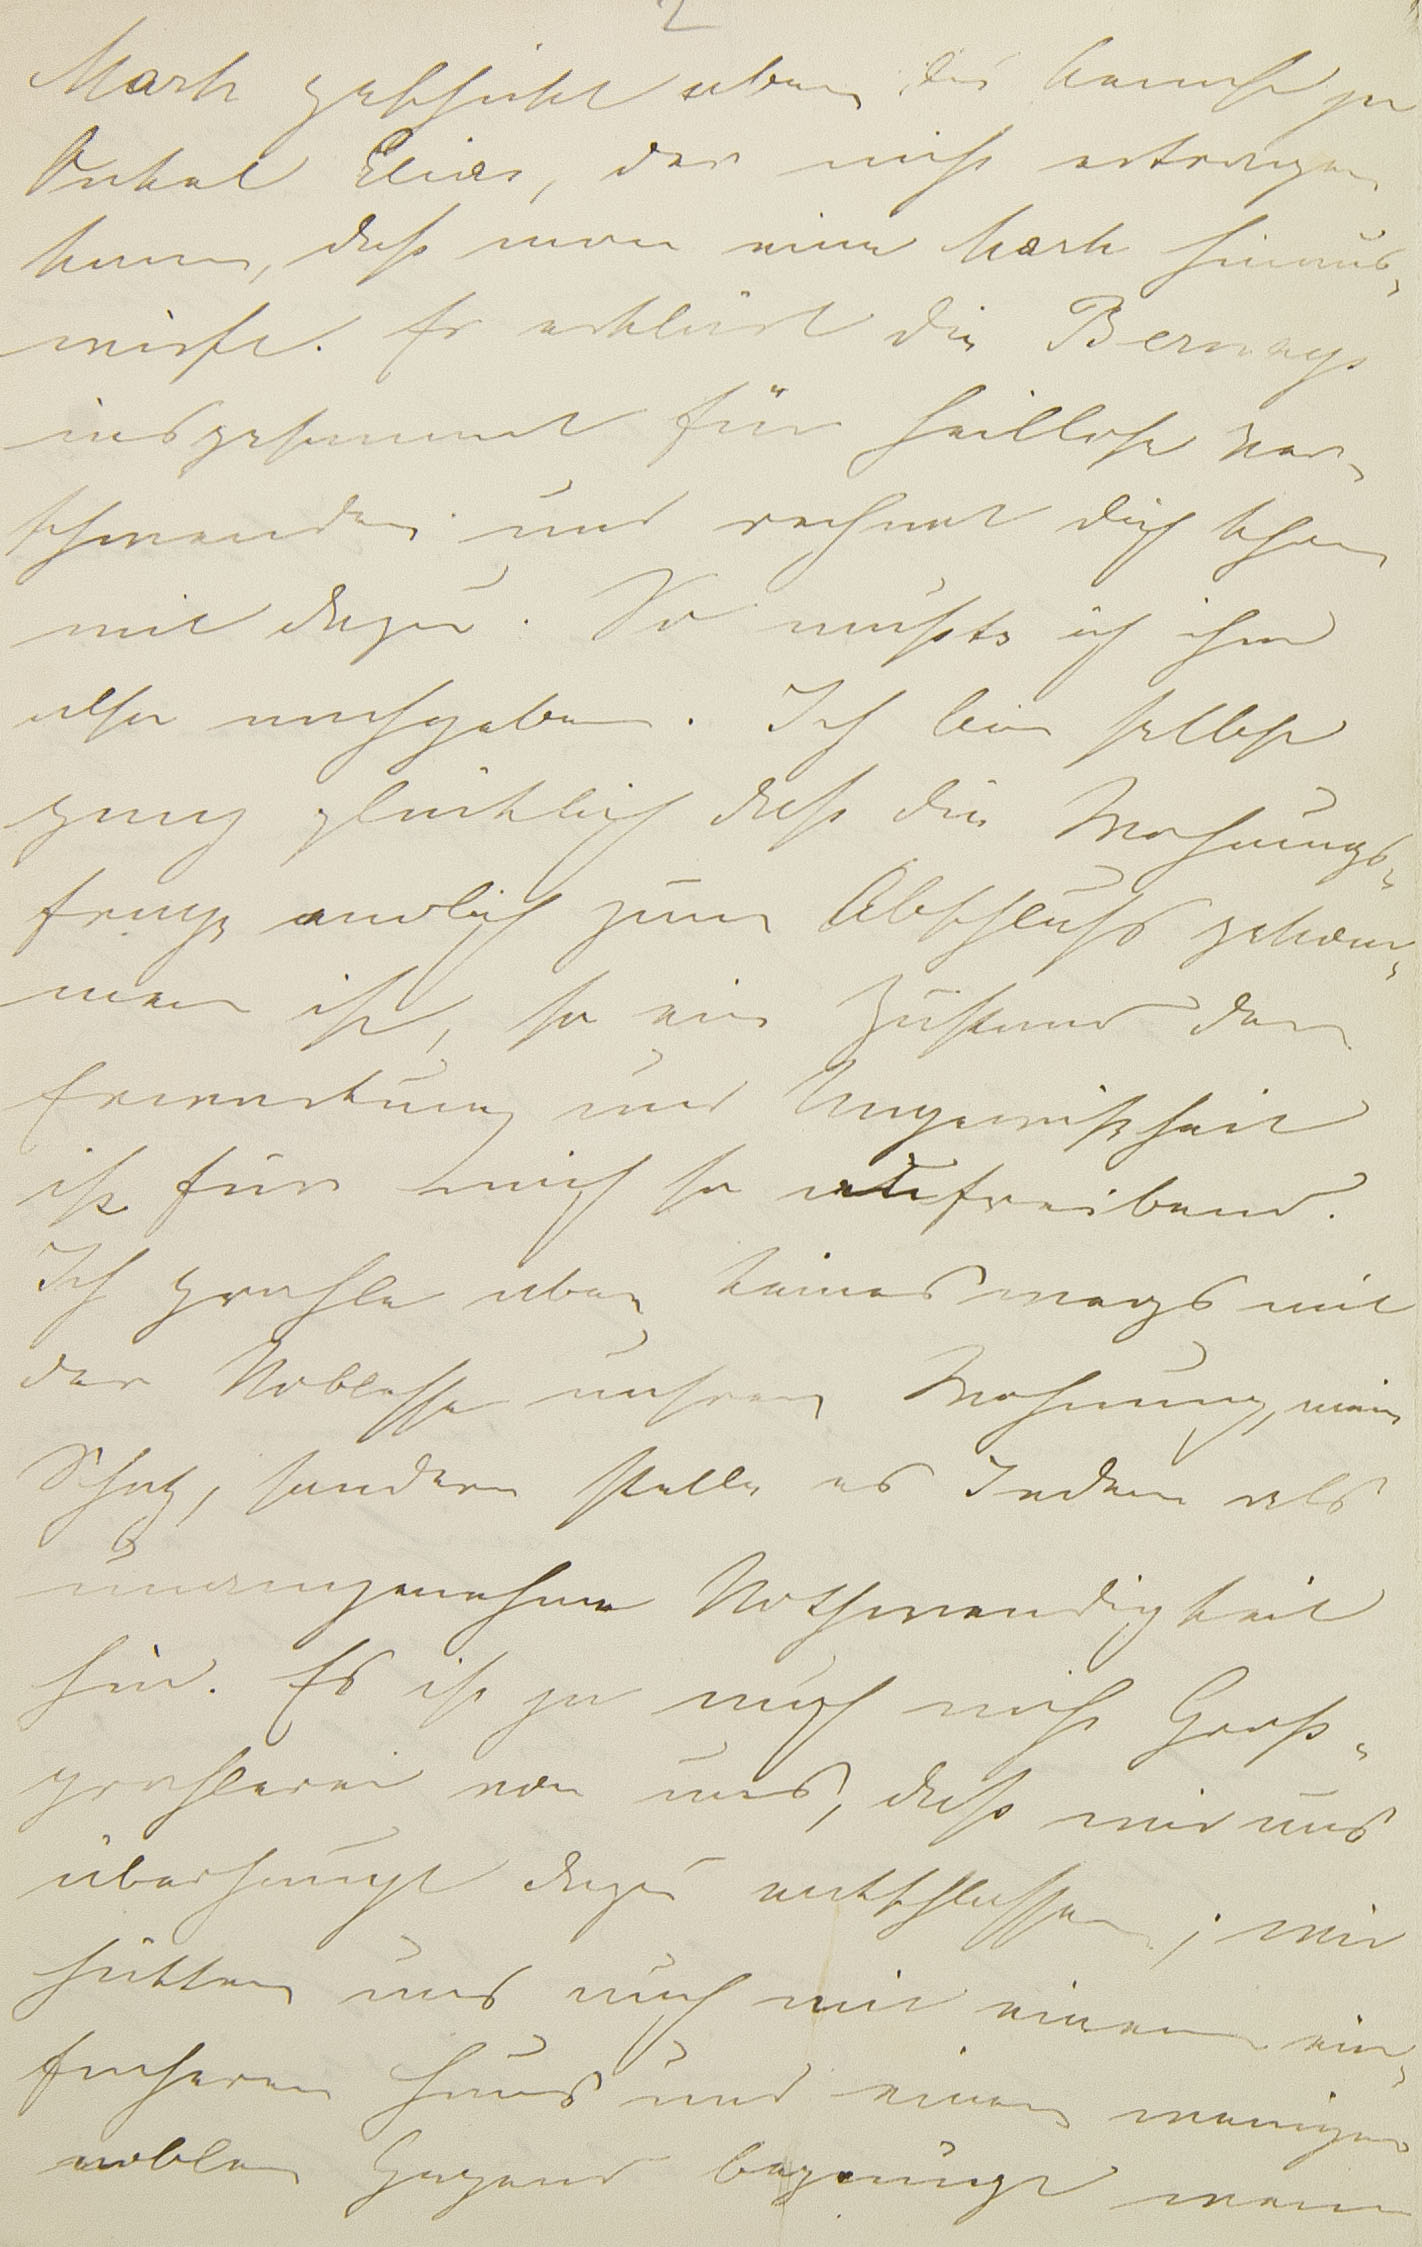 2
Mark geschickt aber, du kennst ja
Onkel Elias, der nicht ertragen
kann, daß man eine Mark hinaus-
wirft. Er erklärt die Bernays
insgesammt für heillose Ver-
schwender und rechnet dich schon
mit dazu. So mußte ich ihm
also nachgeben. Ich bin selbst
ganz glücklich daß die Wohnungs-
frage endlich zum Abschluß gekom-
men ist, so ein Zustand der
Erwartung und Ungewißheit
ist für mich so aufreibend.
Ich prahle aber keineswegs mit
der Noblesse unserer Wohnung, mein
Schatz, sondern stelle es Jedem als
unangenehme Nothwendigkeit
hin. Es ist ja auch nicht Groß-
prahlerei von uns, daß wir uns
überhaupt dazu entschlossen; wir
hätten uns auch mit einem ein-
facheren Haus und einer weniger
noblen Gegend begnügt wenn